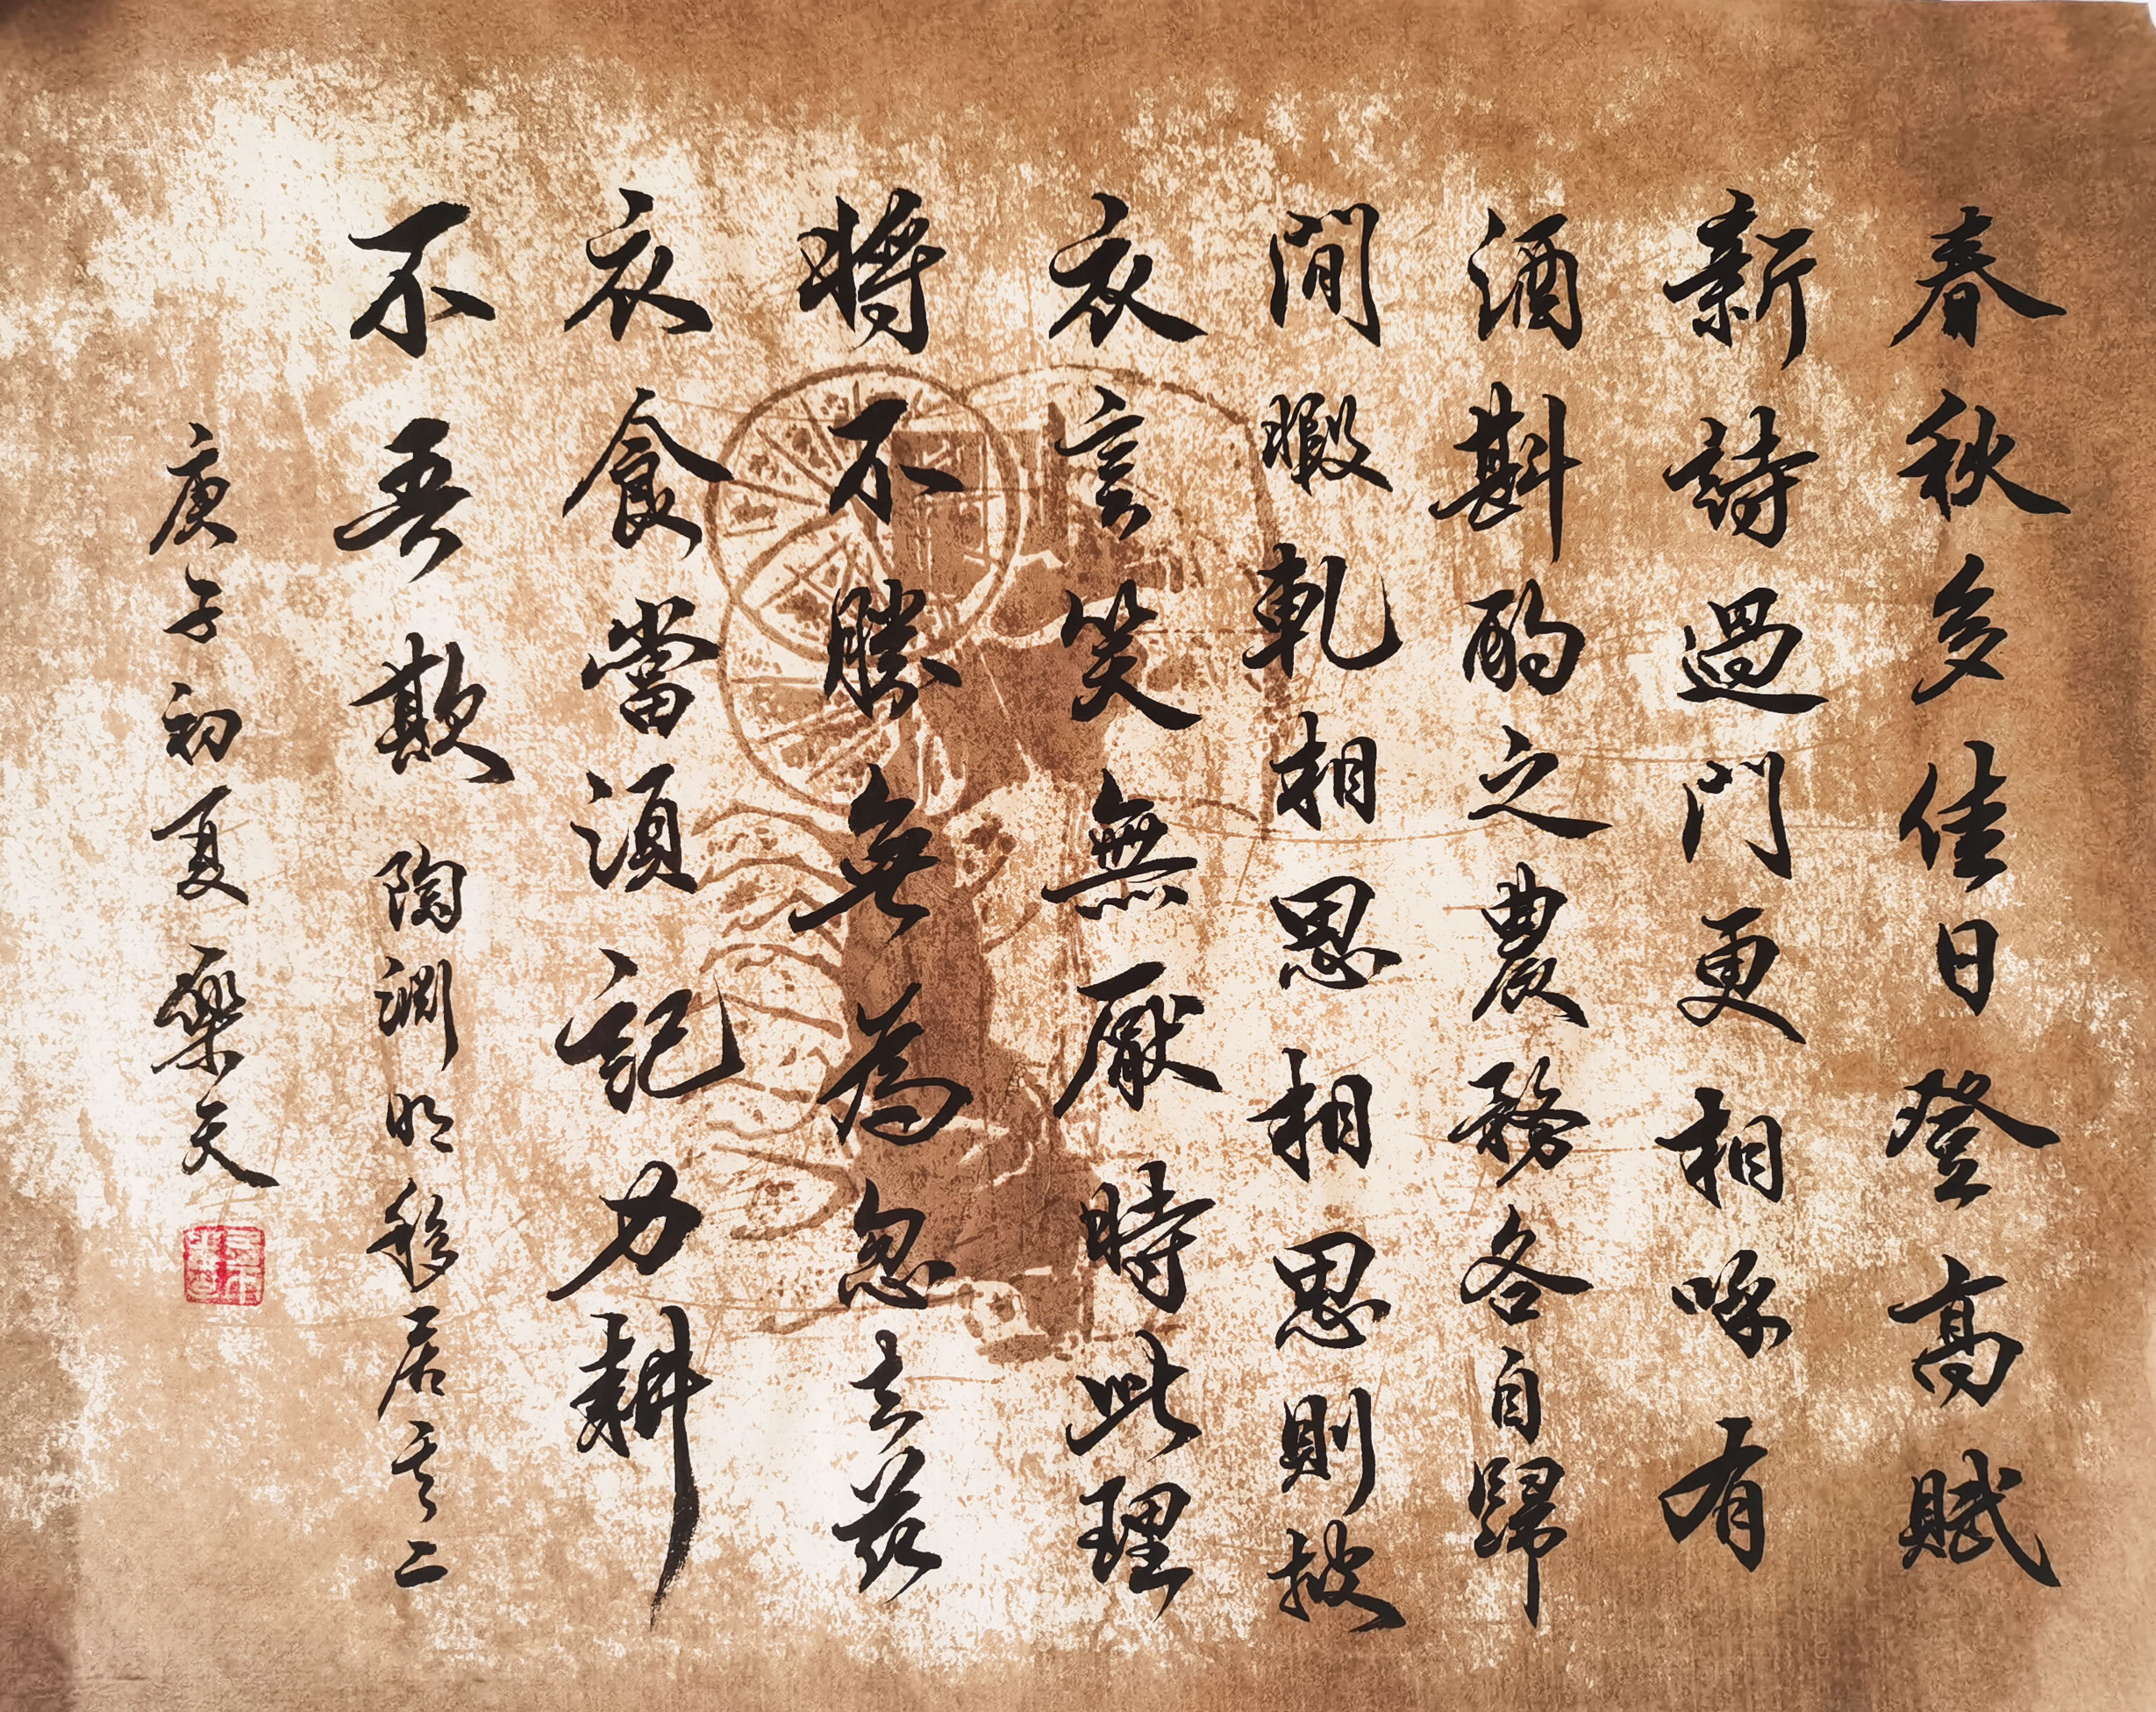 春秋多佳日登高賦
新詩過門更相呼有
酒斟酌之農務各自歸
閒暇輒相思相思則披
衣言笑無厭時此理
將不勝無為忽去茲
衣食當須記力耕
不吾欺 陶淵明移居其二
庚子初夏 樂天